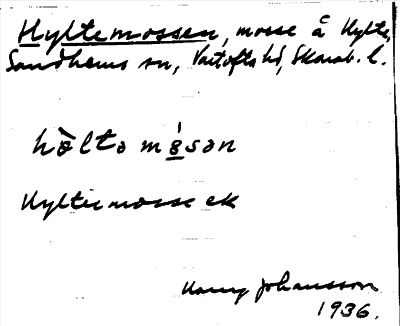 Hyltemossen, mosse å Hylte,
Sandhems sn, Vartofta hd, Skarab. l.
hòltə mósən
Hyltemosse ek
Harry Johansson
1936.